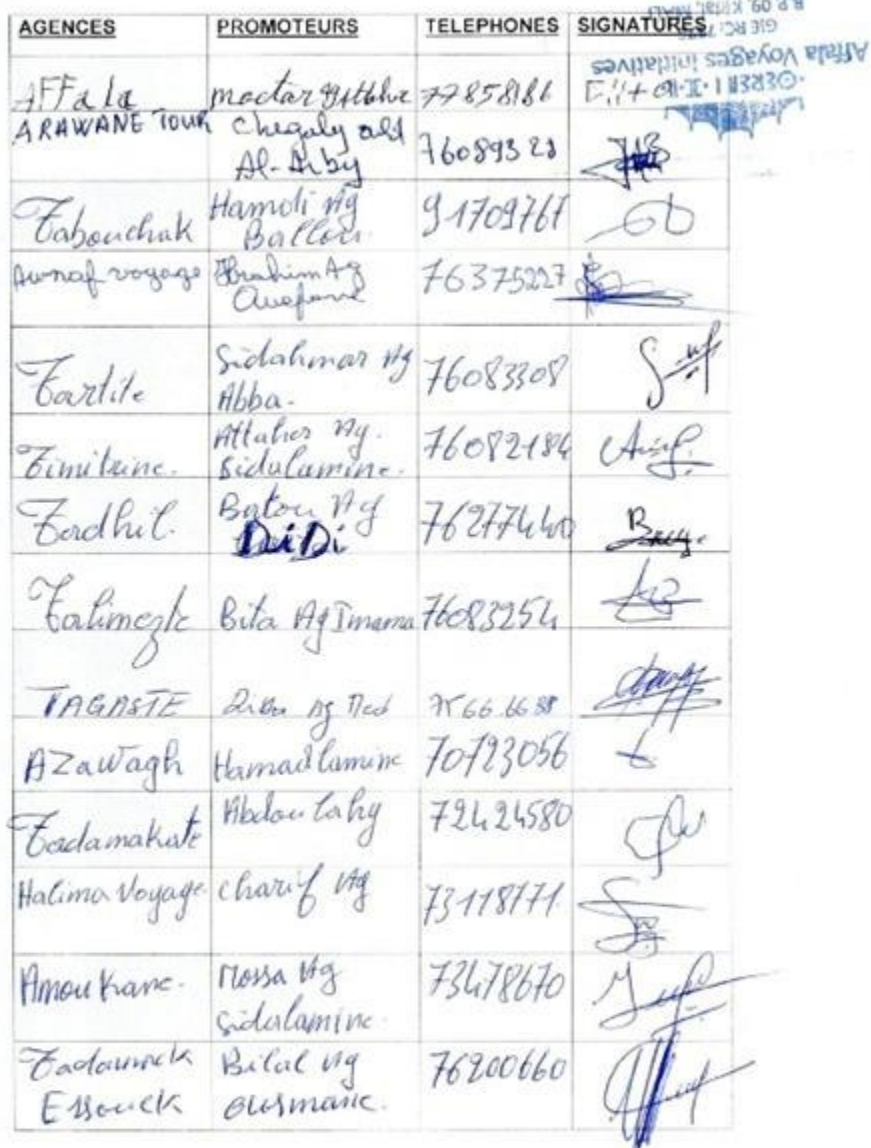 AGENCES PROMOTEURS TELEPHONES SIGNATURES
Affala Voyages initiatives
AFFala moctar 77858186
ARAWANE TOUR Chegaly ald
Al-Arby 76089328
Tabouchak Hamdi Ag
Ballou 91709767
Awnaf voyage Ibrahim Ag 76375227
Tartite Sidahmar Ag
Abba. 76083308
Timitrine. Attaher Ag.
Sidalamine. 76082184
Tadhil. Batou Ag
DiDi 76277440
Talimezk Bita Ag Imama 76083254
TAGASTE Ag
AZawagh Hamadlamine 70723056
Tadamakate Abdoulahy 72424580
Halima Voyage Charif Ag 73118771
Amoukrane. Mossa Ag
Sidalamine. 73478670
Tadamek Bilal Ag 76200660
Essouck Ousmane.